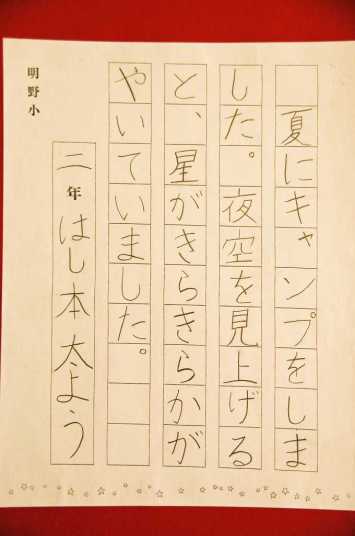 夏にキャンプをしま
した。夜空を見上げる
と、星がきらきらかが
やいていました。
二年 はし本 太よう
明野小